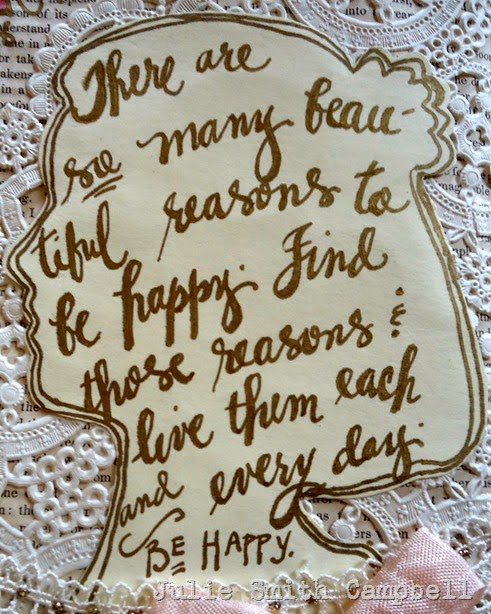 There are
so many beau-
tiful reasons to
be happy. Find
those reasons &
live them each
and every day.
BE HAPPY.
Julie Smith Campbell